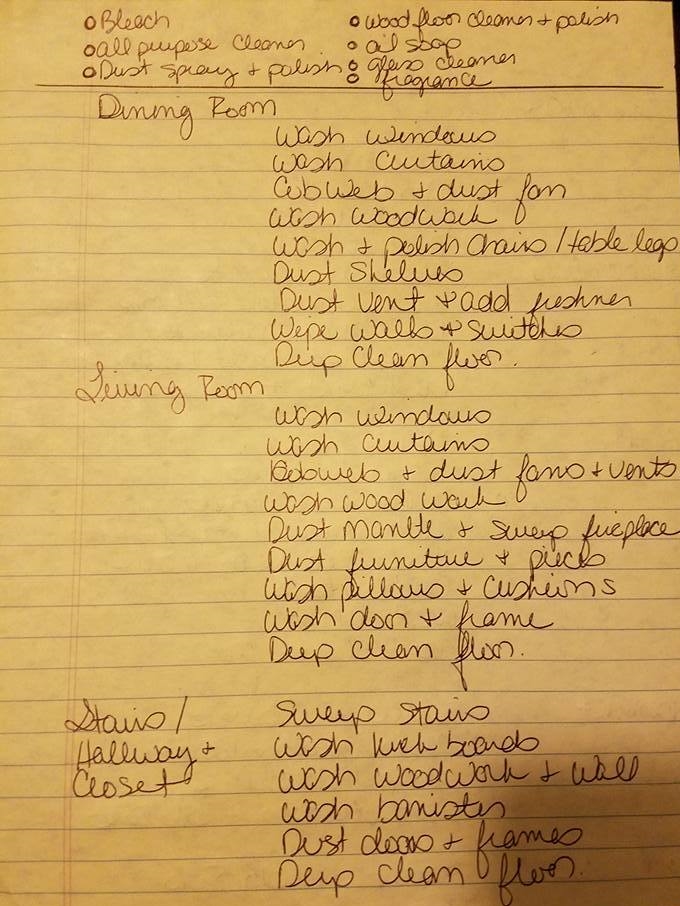 Bleach
All purpose cleaner
Dust spray + polish
wood floor cleaner + polish
oil soap
glass cleaner
fragrance
Dining Room
Wash windows
Wash Curtains
Cobweb + dust fan
Wash woodwork
Wash + polish Chairs / table legs
Dust Shelves
Dust vent + add freshner
Wipe walls + switches
Deep Clean floor.
Living Room
Wash windows
Wash Curtains
Cobweb + dust fans + vents
Wash wood work
Dust Mantle + Sweep fireplace
Dust furniture + pieces
Wash pillows + Cushions
Wash door + frame
Deep clean floor.
Stairs /
Hallway +
Closet
Sweep stairs
Wash kick boards
Wash woodwork + wall
Wash banister
Dust doors + frames
Deep clean floor.